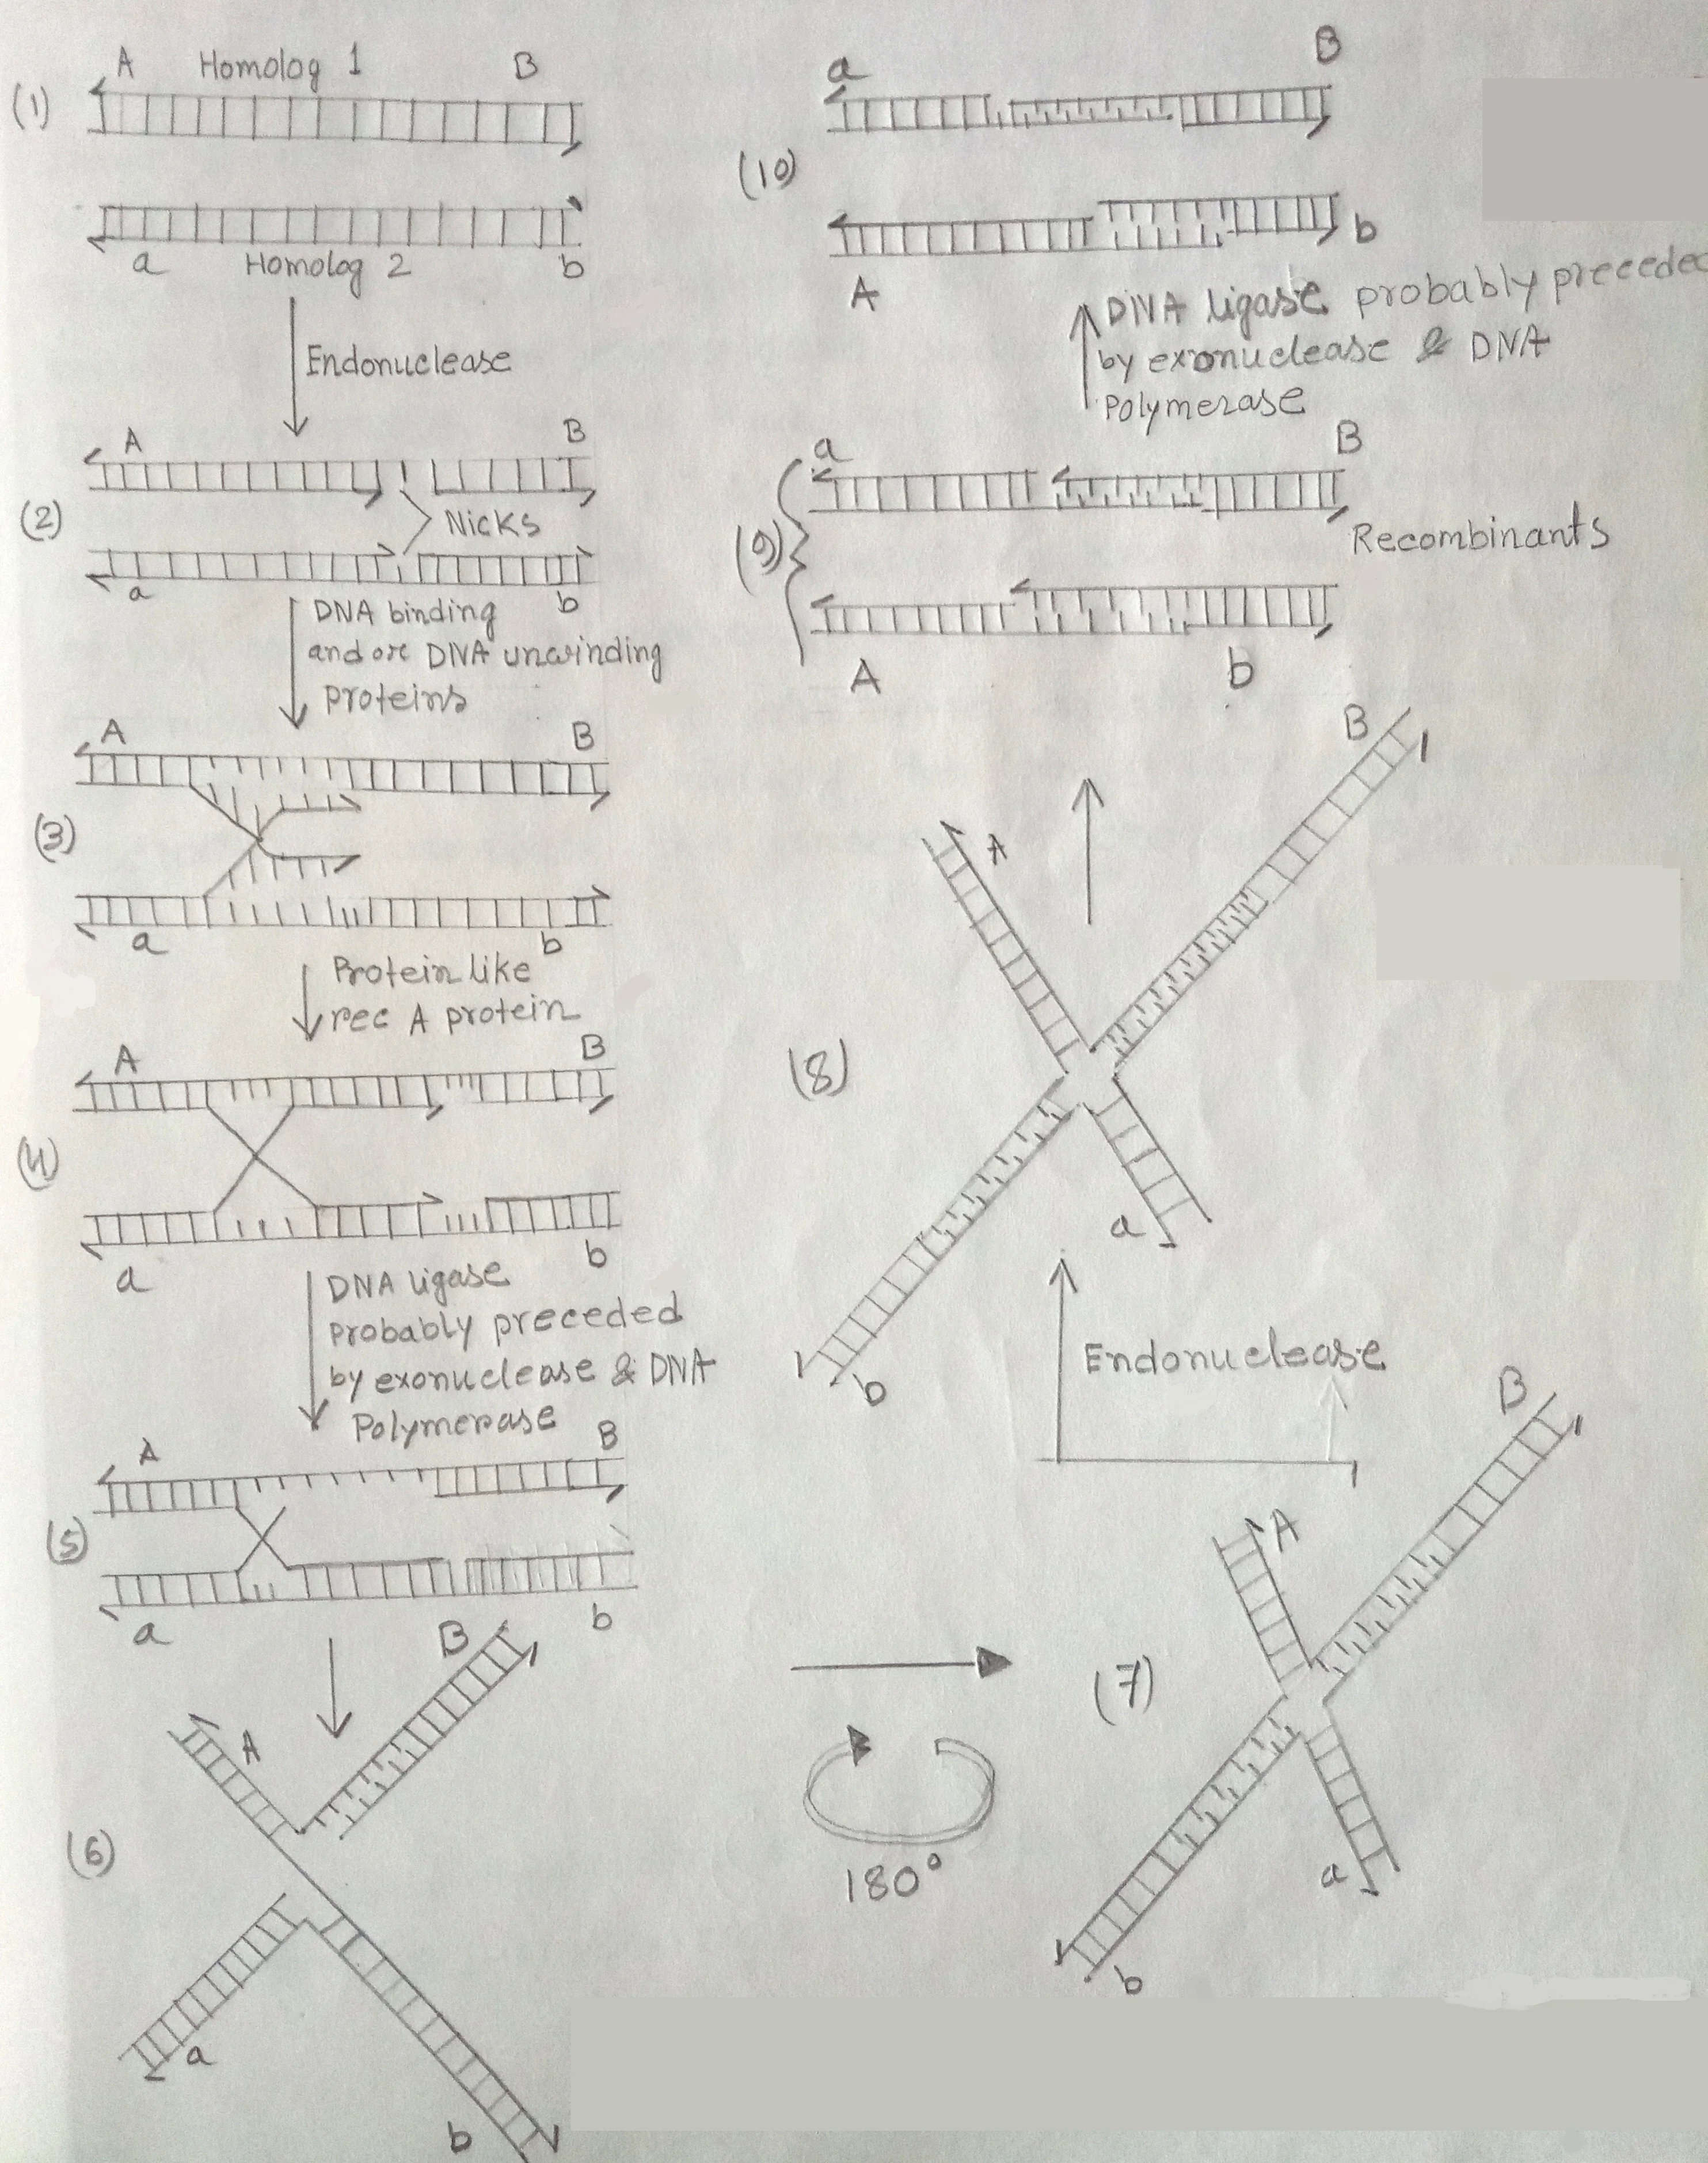 A Homolog 1 B
(1)
a Homolog 2 b
Endonuclease
A B
(2)
Nicks
a b
DNA binding
and or DNA unwinding
proteins
A B
(3)
a b
Protein like
rec A protein
A B
(4)
a b
DNA ligase
probably preceded
by exonuclease & DNA
Polymerase
A B
(5)
a b
B
A
(6)
a
b
180°
(7)
B
A
a
b
Endonuclease
(8)
B
A
a
b
a B
(9)
Recombinants
A b
DNA ligase probably preceded
by exonuclease & DNA
Polymerase
a B
(10)
b
A